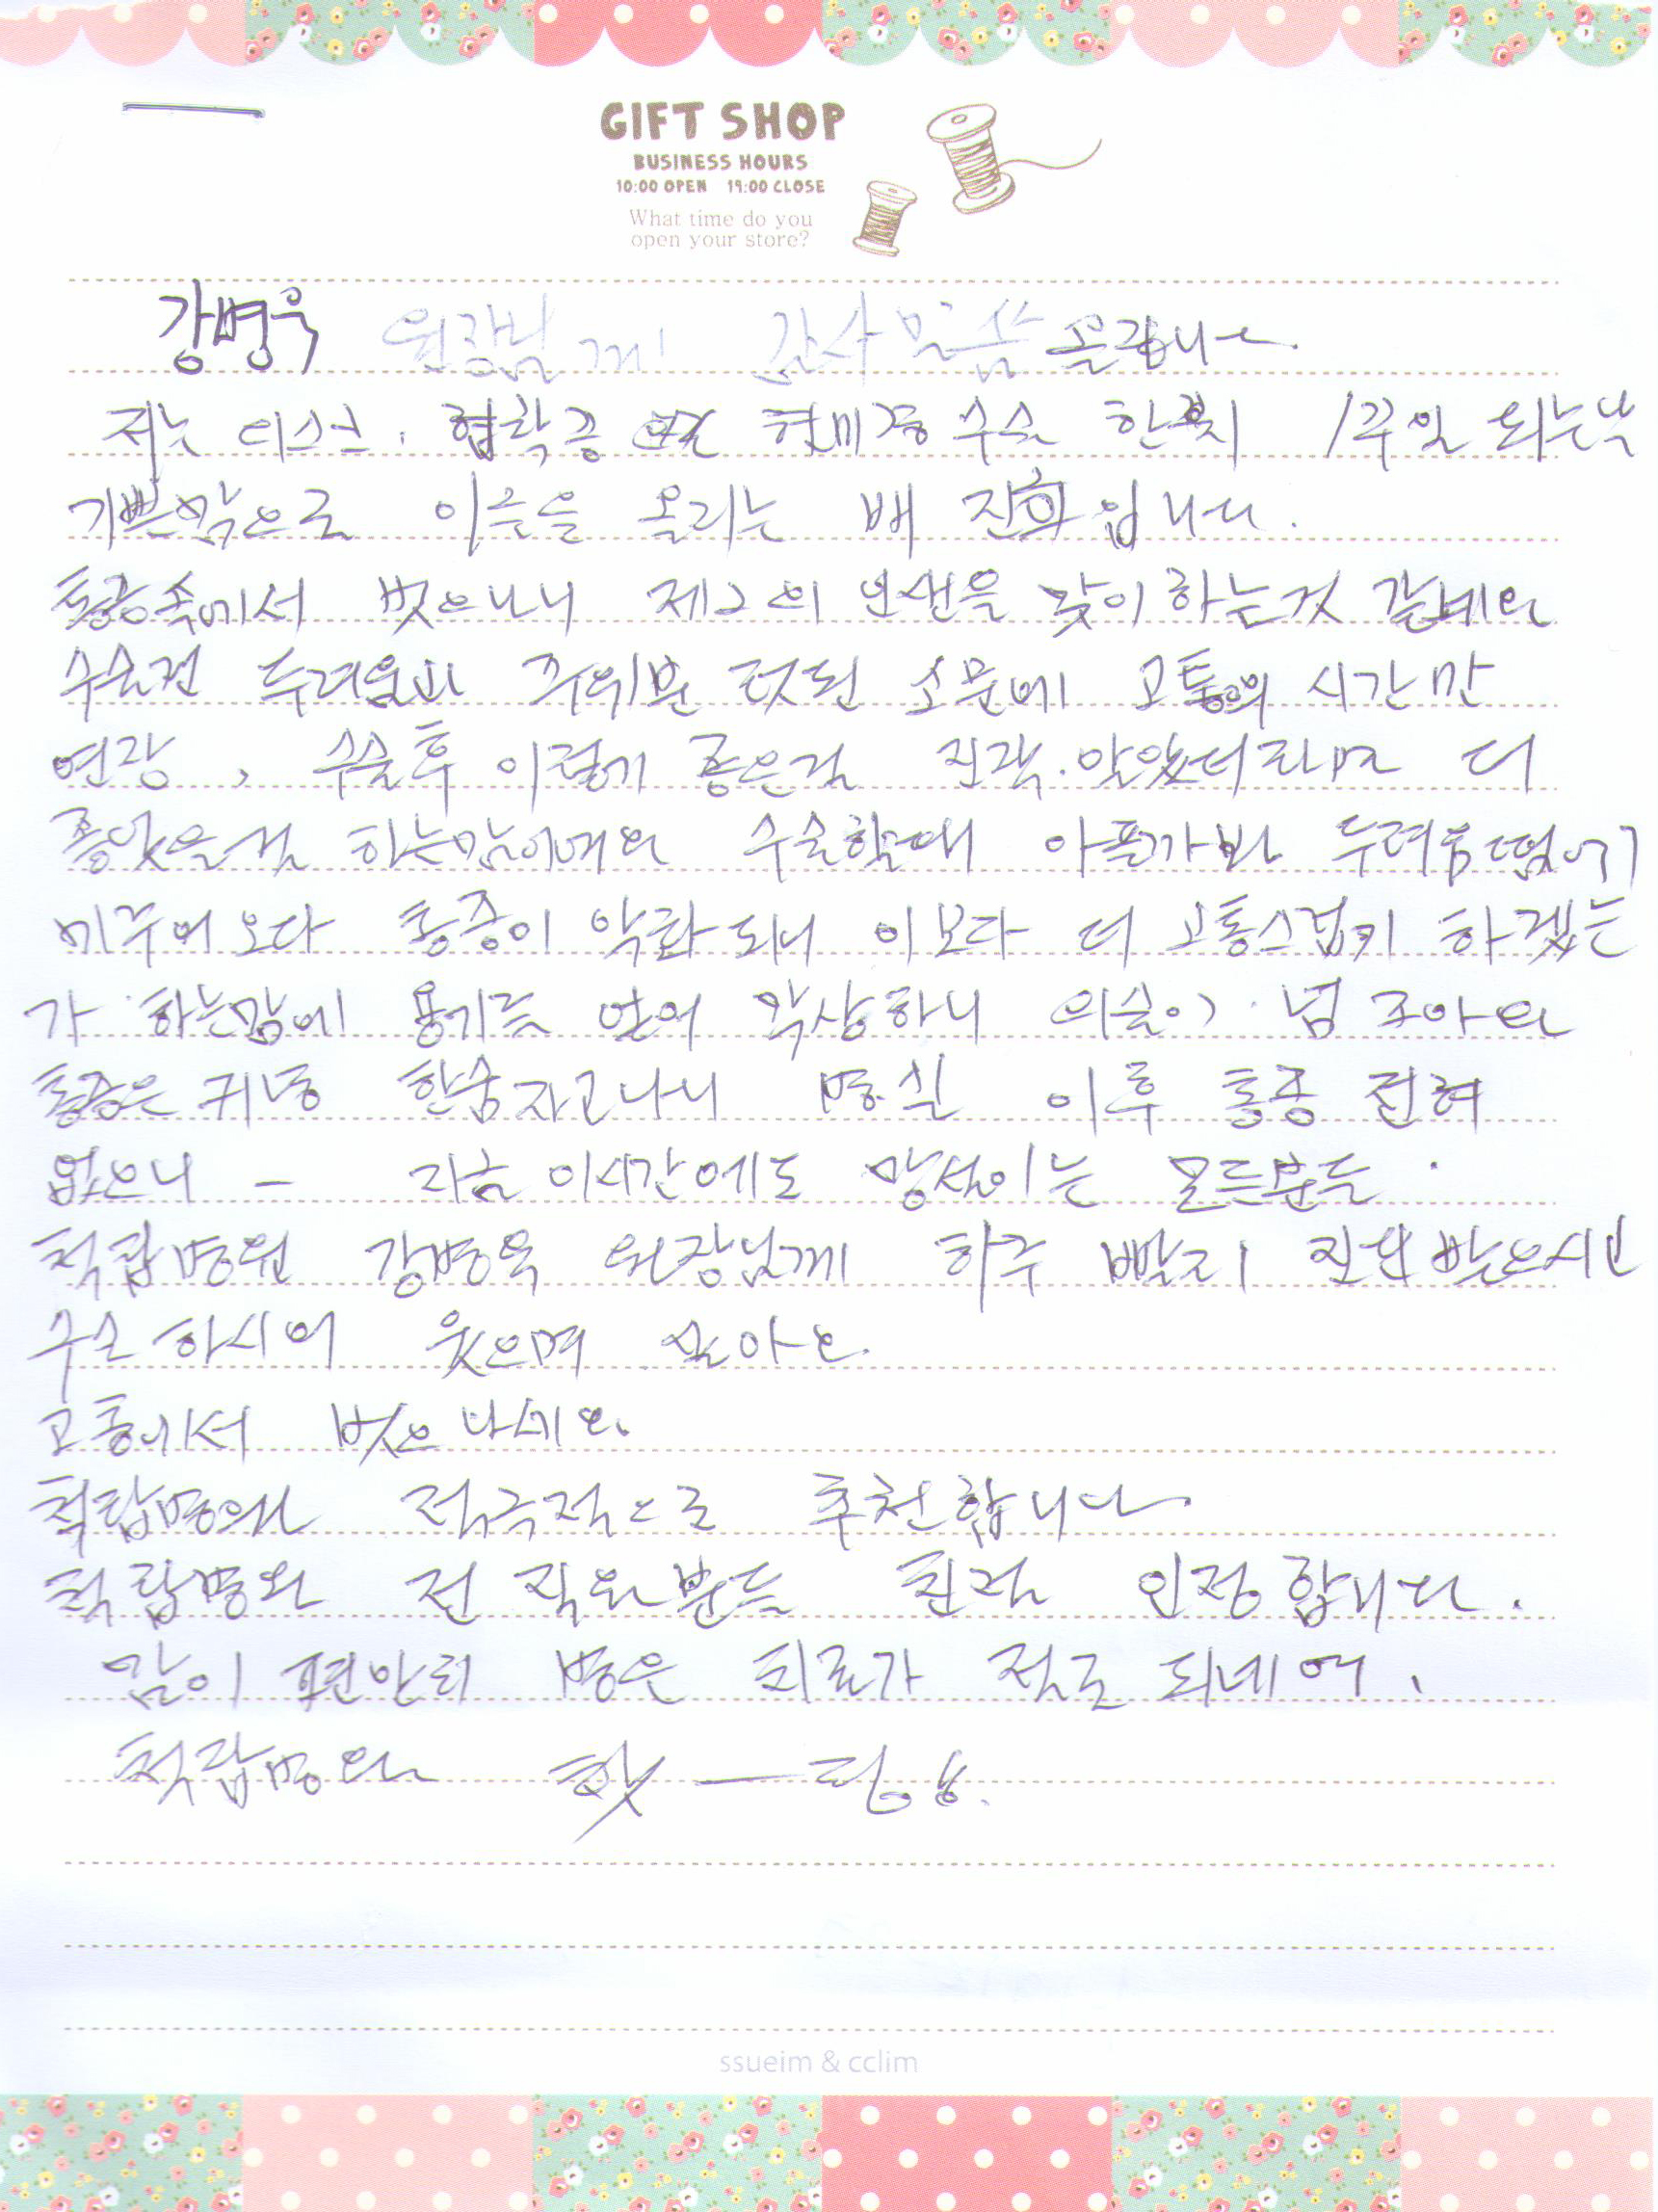 GIFT SHOP
BUSINESS HOURS
10:00 OPEN 19:00 CLOSE
What time do you
open your store?
강병욱 원장님께 감사 말씀 올립니다.
저는 디스크, 협착증 현미경 수술 한지 1주일 되는날
기쁜맘으로 이글을 올리는 배 진희입니다.
통증속에서 벗으나니 제2의 인생을 맞이하는것 같네요
수술전 두려움과 주위분 헛된 소문에 고통의 시간만
연장, 수술후 이렇게 좋은걸 진작.알았더라면 더
좋았을걸 하는맘이예요 수술할때 아플가바 두려움땜에
미루어오다 통증이 악화되니 이보다 더 고통스럽기 하겠는
가 하는맘에 용기를 얻어 막상하니 의술이 넘 조아요
통증은 한숨자고나니 병실 이후 통증 전혀
없으니 - 지금 이시간에도 망설이는 모든분들.
척탑병원 강병욱 원장님께 하루 빨리 진료받으시고
수술하시어 웃으며 살아요.
고통에서 벗으나세요.
척탑병원 적극적으로 추천합니다.
척탑병원 전 직원분들 친절 인정합니다.
맘이 편안히 병은 치료가 절로 되네여.
척탑병원 홧—팅
ssueim & cclim